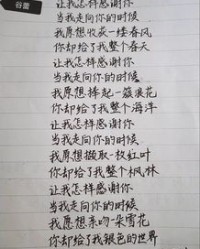 谷蕾
让我怎样感谢你
当我走向你的时候
我原想收获一缕春风
你却给了我整个春天
让我怎样感谢你
当我走向你的时候
我原想捧起一簇浪花
你却给了我整个海洋
让我怎样感谢你
当我走向你的时候
我原想撷取一枚红叶
你却给了我整个枫林
让我怎样感谢你
当我走向你的时候
我原想亲吻一朵雪花
你却给了我银色的世界